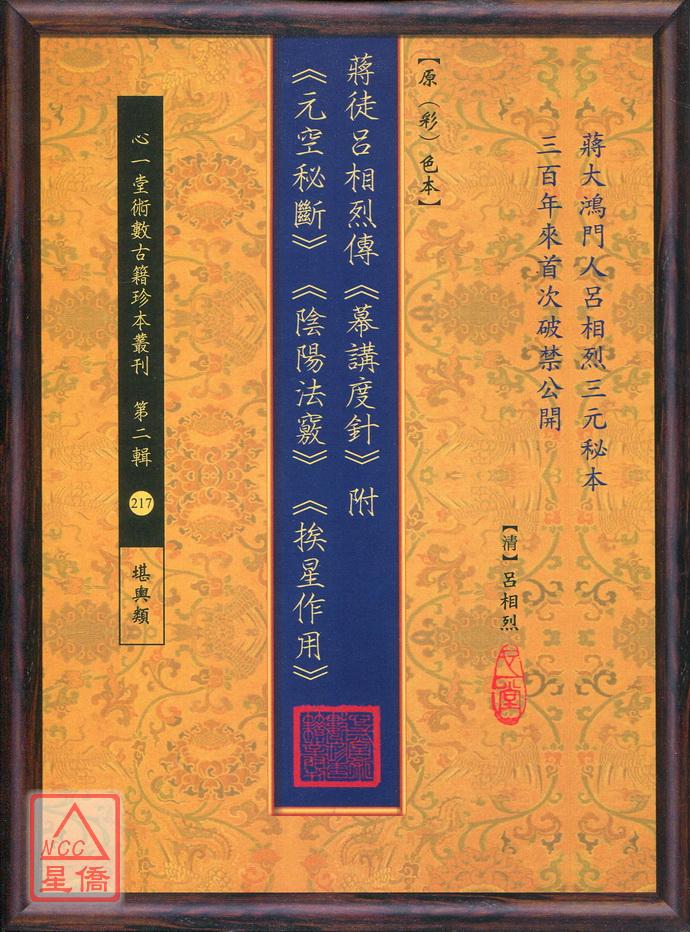 蔣大鴻門人呂相烈三元秘本
三百年來首次破禁公開
【清】呂相烈
心一堂
【原（彩）色本】
蔣徒呂相烈傳《幕講度針》附
《元空秘斷》《陰陽法竅》《挨星作用》
心一堂術數古籍珍本叢刊 第二輯
217
堪輿類
NCC
星僑